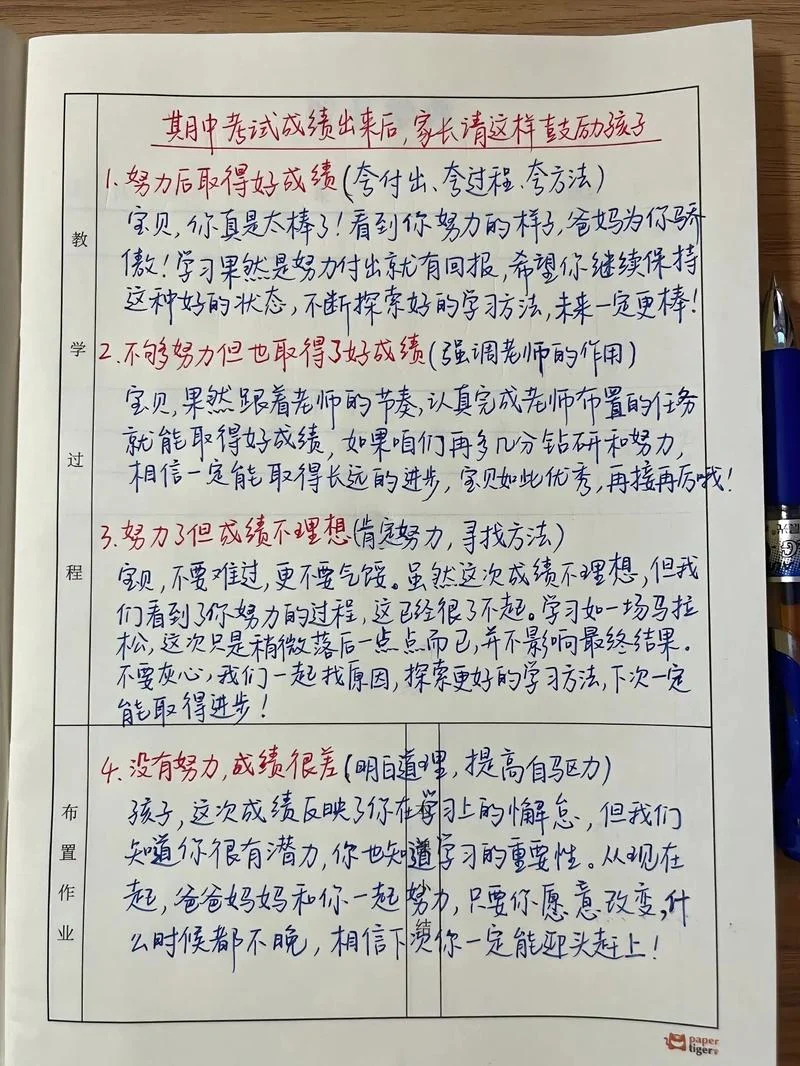 期中考试成绩出来后,家长请这样鼓励孩子
1.努力后取得好成绩(夸付出、夸过程、夸方法)
宝贝,你真是太棒了!看到你努力的样子,爸妈为你骄
傲!学习果然是努力付出就有回报,希望你继续保持
这种好的状态,不断探索好的学习方法,未来一定更棒!
2.不够努力但也取得了好成绩(强调老师的作用)
宝贝,果然跟着老师的节奏,认真完成老师布置的任务
就能取得好成绩,如果咱们再多几分钻研和努力,
相信一定能取得长远的进步,宝贝如此优秀,再接再厉哦!
3.努力了但成绩不理想(肯定努力,寻找方法)
宝贝,不要难过,更不要气馁。虽然这次成绩不理想,但我
们看到了你努力的过程,这已经很了不起。学习如一场马拉
松,这次只是稍微落后一点点而已,并不影响最终结果。
不要灰心,我们一起找原因,探索更好的学习方法,下次一定
能取得进步!
4.没有努力,成绩很差(明白道理,提高自驱力)
孩子,这次成绩反映了你在学习上的懈怠,但我们
知道你很有潜力,你也知道学习的重要性。从现在
起,爸爸妈妈和你一起努力,只要你愿意改变,什
么时候都不晚,相信下次你一定能迎头赶上!
教学过程
布置作业
paper
tiger